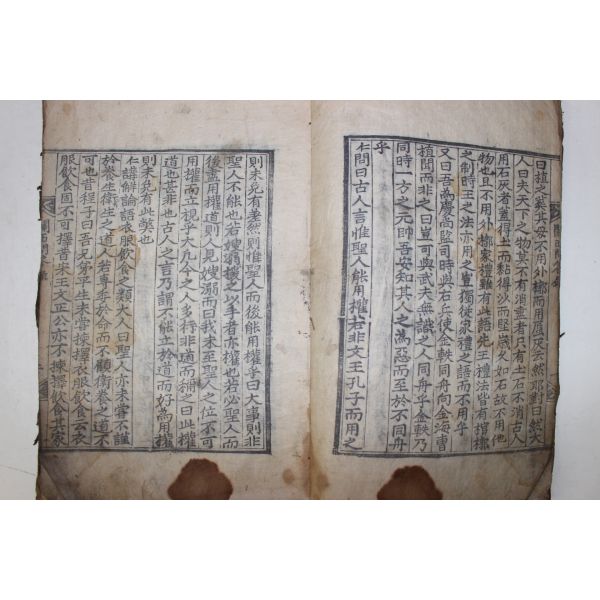 曰植之葬其母不用外槨而用灰云然耶對曰然大
人曰夫天下之物莫不有消壹者只有土石不消古人
用石灰者蓋得土而黏得沙而堅歲久如石故不用他
物也且不用外槨家禮雖有此語先王禮法皆有棺槨
之制時王之法亦用之豈獨從家禮之語而不用乎
又曰吾爲慶尙監司時與右兵使金軼同舟向金海曺
植聞而非之曰豈可與武夫無識之人同舟乎金軼乃
同時一方之元帥吾安知其人之爲惡而至於不同舟
乎
仁問曰古人言惟聖人能用權若非文王孔子而用之
則未免有差然則惟聖人而後能用權乎曰大事則非
聖人不能也若嫂溺援之以手者亦權也若必聖人而
後盡用權道則人見嫂溺而曰我未至聖人之位不可
用權而立視乎大凡今之人多行非道而稱之曰此權
道也甚非也古人之言乃謂不能立於道而好爲用權
則未免有此弊也
仁講解論語衣服飮食之類大人曰聖人亦未嘗不謹
於養生衛生之道人若專委於命而不顧衛養之道不
可也昔程子曰吾兄弟平生未嘗擇衣服飮食云衣
服飮食固不可擇昔宋王文正公亦不揀擇飮食其家